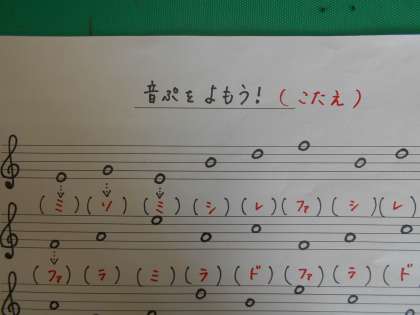 音ぷをよもう!(こたえ)
(ミ)(ソ)(ミ)(シ)(レ)(ファ)(シ)(レ)
(ファ)(ラ)(ミ)(ラ)(ド)(ファ)(ラ)(ド